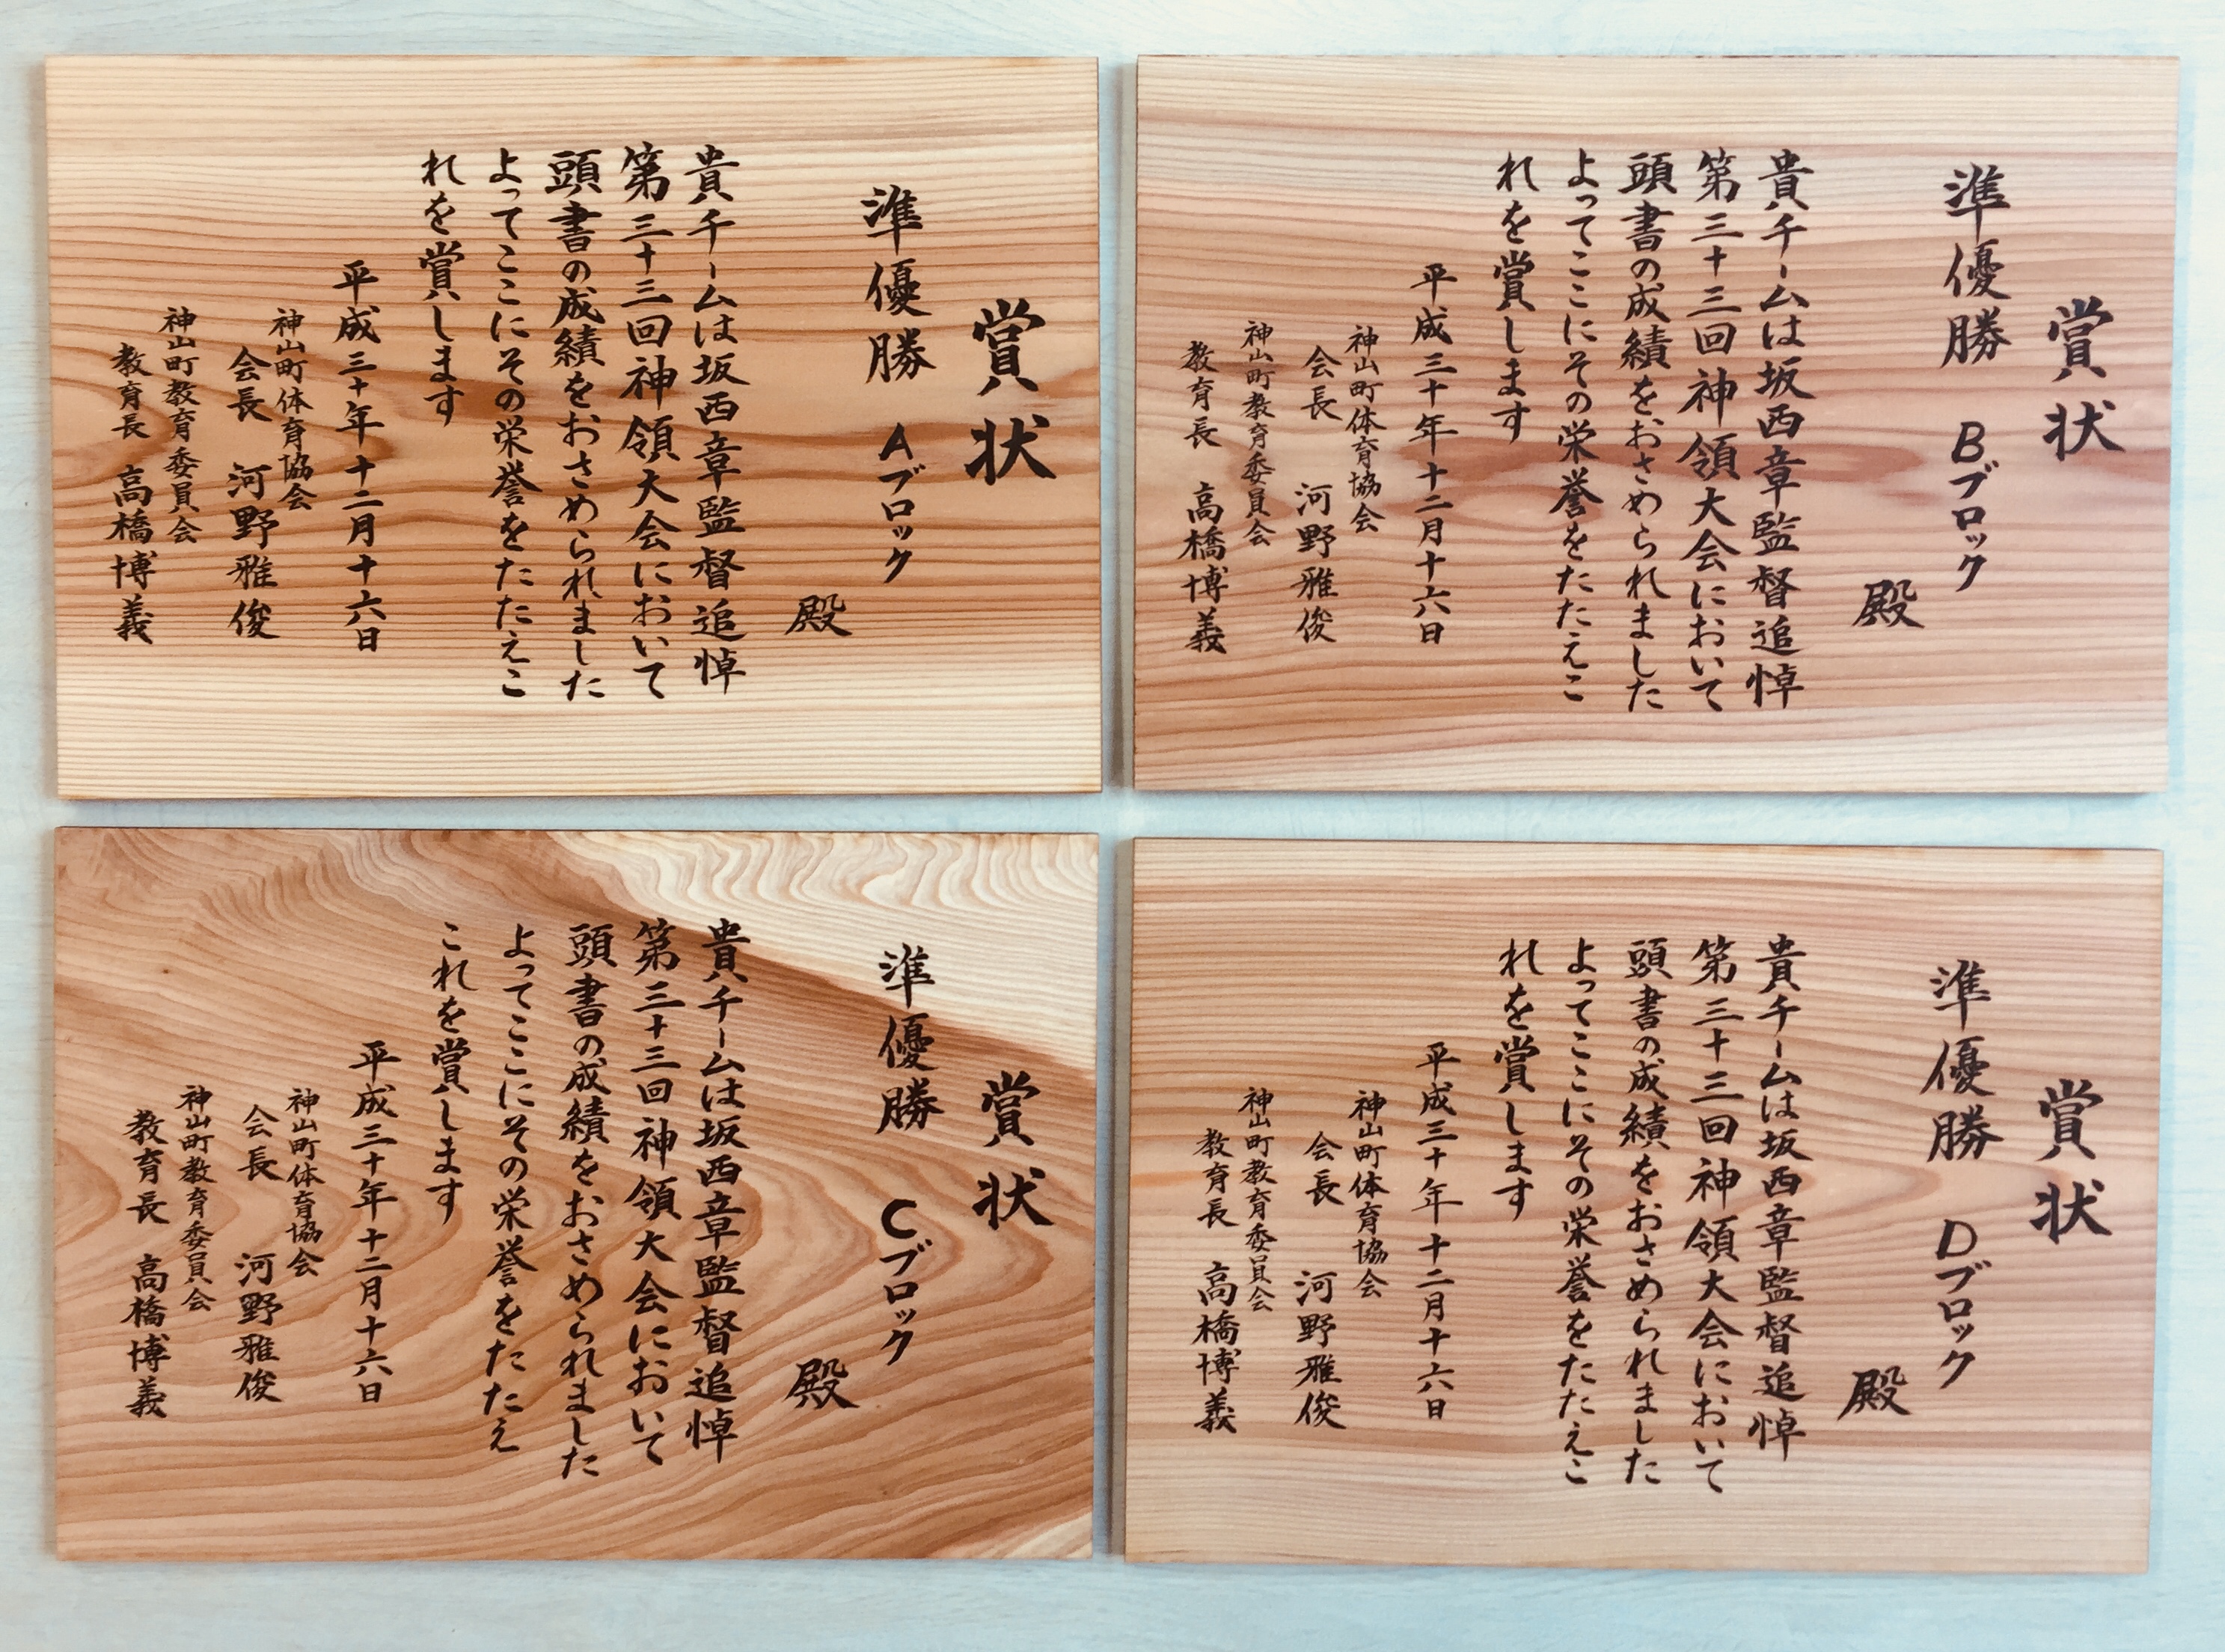 賞状
準優勝 Aブロック
殿
貴チームは坂西章監督追悼
第三十三回神領大会において
頭書の成績をおさめられました
よってここにその栄誉をたたえこ
れを賞します
平成三十年十二月十六日
神山町体育協会
会長 河野雅俊
神山町教育委員会
教育長 高橋博義
賞状
準優勝 Bブロック
殿
貴チームは坂西章監督追悼
第三十三回神領大会において
頭書の成績をおさめられました
よってここにその栄誉をたたえこ
れを賞します
平成三十年十二月十六日
神山町体育協会
会長 河野雅俊
神山町教育委員会
教育長 高橋博義
賞状
準優勝 Cブロック
殿
貴チームは坂西章監督追悼
第三十三回神領大会において
頭書の成績をおさめられました
よってここにその栄誉をたたえ
これを賞します
平成三十年十二月十六日
神山町体育協会
会長 河野雅俊
神山町教育委員会
教育長 高橋博義
賞状
準優勝 Dブロック
殿
貴チームは坂西章監督追悼
第三十三回神領大会において
頭書の成績をおさめられました
よってここにその栄誉をたたえこ
れを賞します
平成三十年十二月十六日
神山町体育協会
会長 河野雅俊
神山町教育委員会
教育長 高橋博義